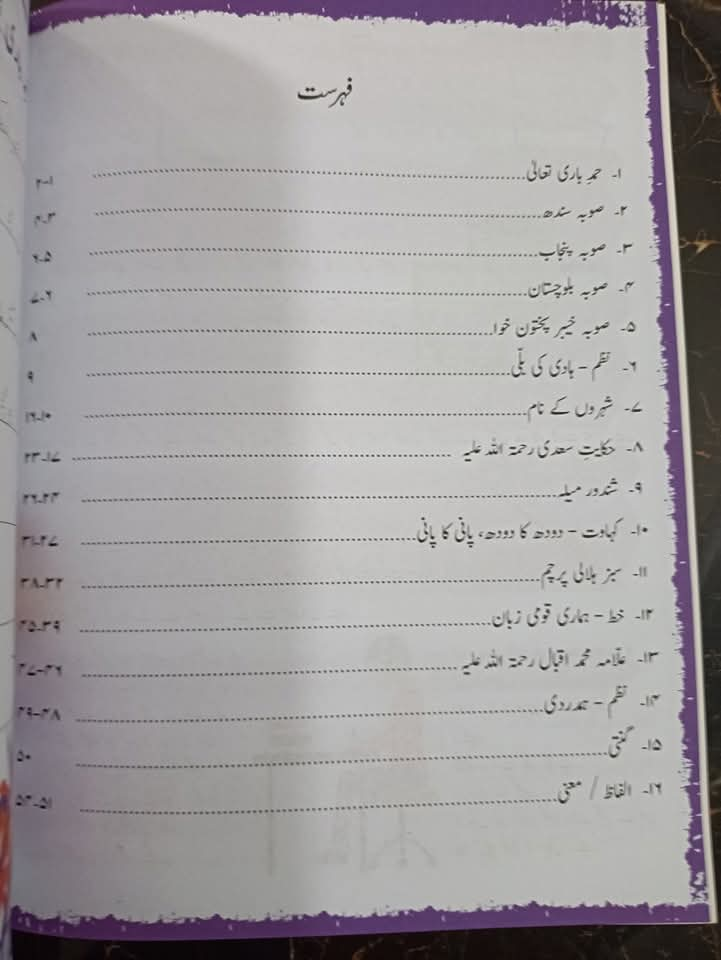 فہرست
۱۔ حمدِ باری تعالیٰ ۱-۲
۲۔ صوبہ سندھ ۳۔۴
۳۔ صوبہ پنجاب ۵۔۶
۴۔ صوبہ بلوچستان ۶۔۷
۵۔ صوبہ خیبر پختون خوا ۸
۶۔ نظم - ہادی کی بلّی ۹
۷۔ شہروں کے نام ۱۰۔۱۶
۸۔ حکایتِ سعدی رحمۃ اللہ علیہ ۱۷۔۲۳
۹۔ شندور میلہ ۲۴۔۲۶
۱۰۔ کہاوت - دودھ کا دودھ، پانی کا پانی ۲۷۔۳۱
۱۱۔ سبز ہلالی پرچم ۳۲۔۳۸
۱۲۔ خط - ہماری قومی زبان ۳۹۔۴۵
۱۳۔ علّامہ محمد اقبال رحمۃ اللہ علیہ ۴۶-۴۷
۱۴۔ نظم - ہمدردی ۴۸-۴۹
۱۵۔ گنتی ۵۰
۱۶۔ الفاظ / معنی ۵۱۔۵۴